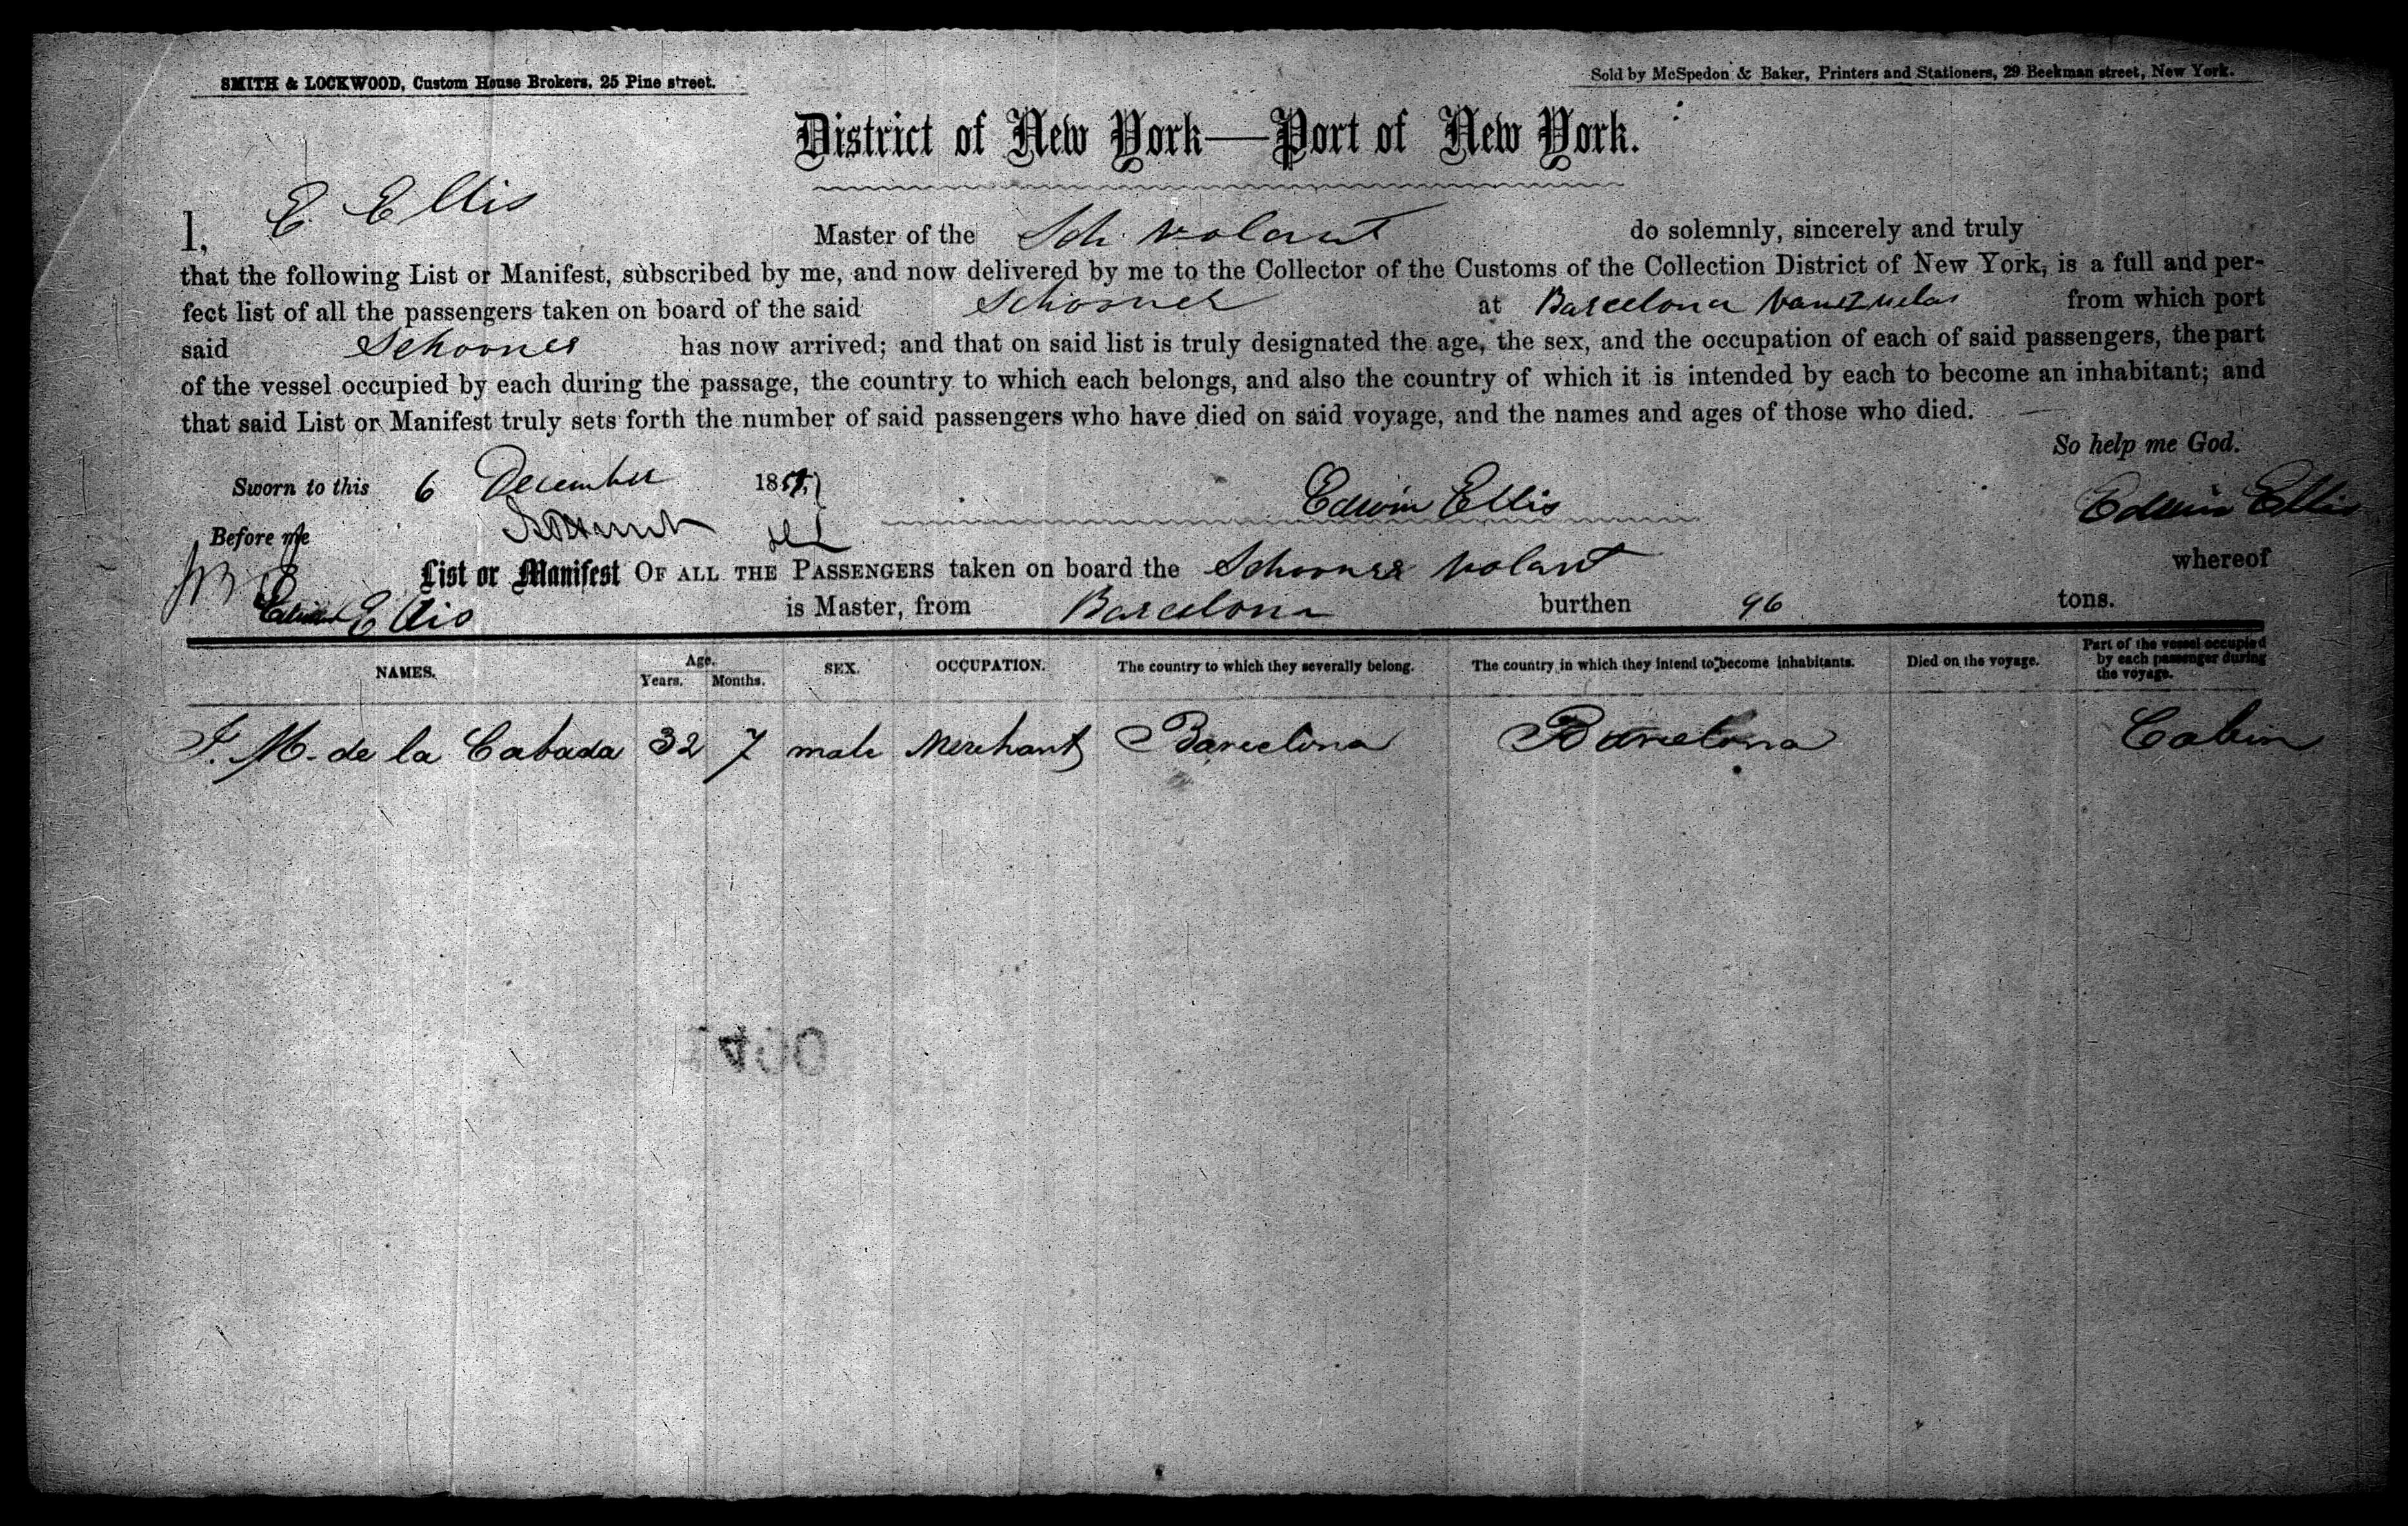 SMITH & LOCKWOOD, Custom House Brokers, 25 Pine street.
Sold by McSpedon & Baker, Printers and Stationers, 29 Beekman street, New York.
District of New York—Port of New York.
I, E Ellis Master of the Sch. Volant do solemnly, sincerely and truly
that the following List or Manifest, subscribed by me, and now delivered by me to the Collector of the Customs of the Collection District of New York, is a full and per-
fect list of all the passengers taken on board of the said Schooner at Barcelona Vanezuelas from which port
said Schooner has now arrived; and that on said list is truly designated the age, the sex, and the occupation of each of said passengers, the part
of the vessel occupied by each during the passage, the country to which each belongs, and also the country of which it is intended by each to become an inhabitant; and
that said List or Manifest truly sets forth the number of said passengers who have died on said voyage, and the names and ages of those who died.
So help me God.
Sworn to this 6 December 185 Edwin Ellis Edwin Ellis
Before me
List or Manifest OF ALL THE PASSENGERS taken on board the Schooner Volant whereof
E Ellis is Master, from Barcelona burthen 96 tons.
NAMES. Age. Years. Months. SEX. OCCUPATION. The country to which they severally belong. The country in which they intend to become inhabitants. Died on the voyage. Part of the vessel occupied by each passenger during the voyage.
J. M. de la Cabada 32 7 male Merchant Barcelona Barcelona Cabin